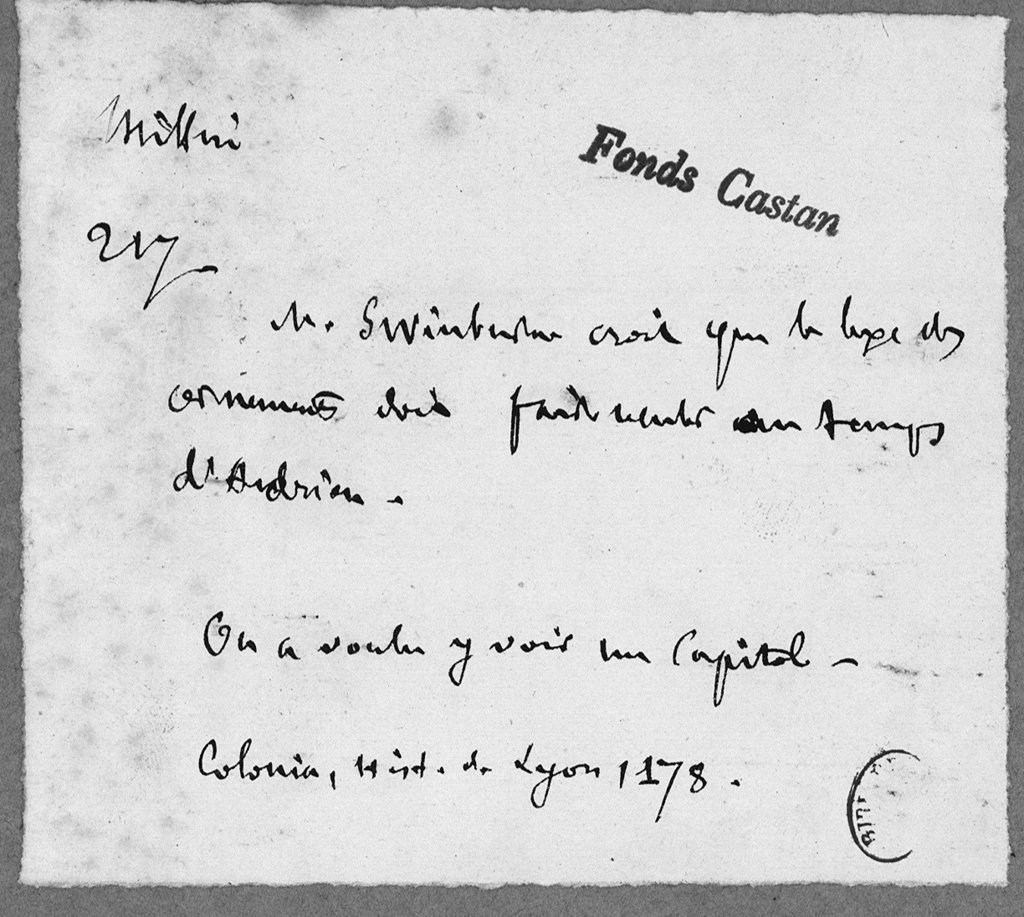 Millin
Fonds Castan
217
M. Swinburne croit que le luxe des
ornements doit faire remonter au temps
d'Adrien.
On a voulu y voir un Capitol –
Colonia, Hist. de Lyon, 178.